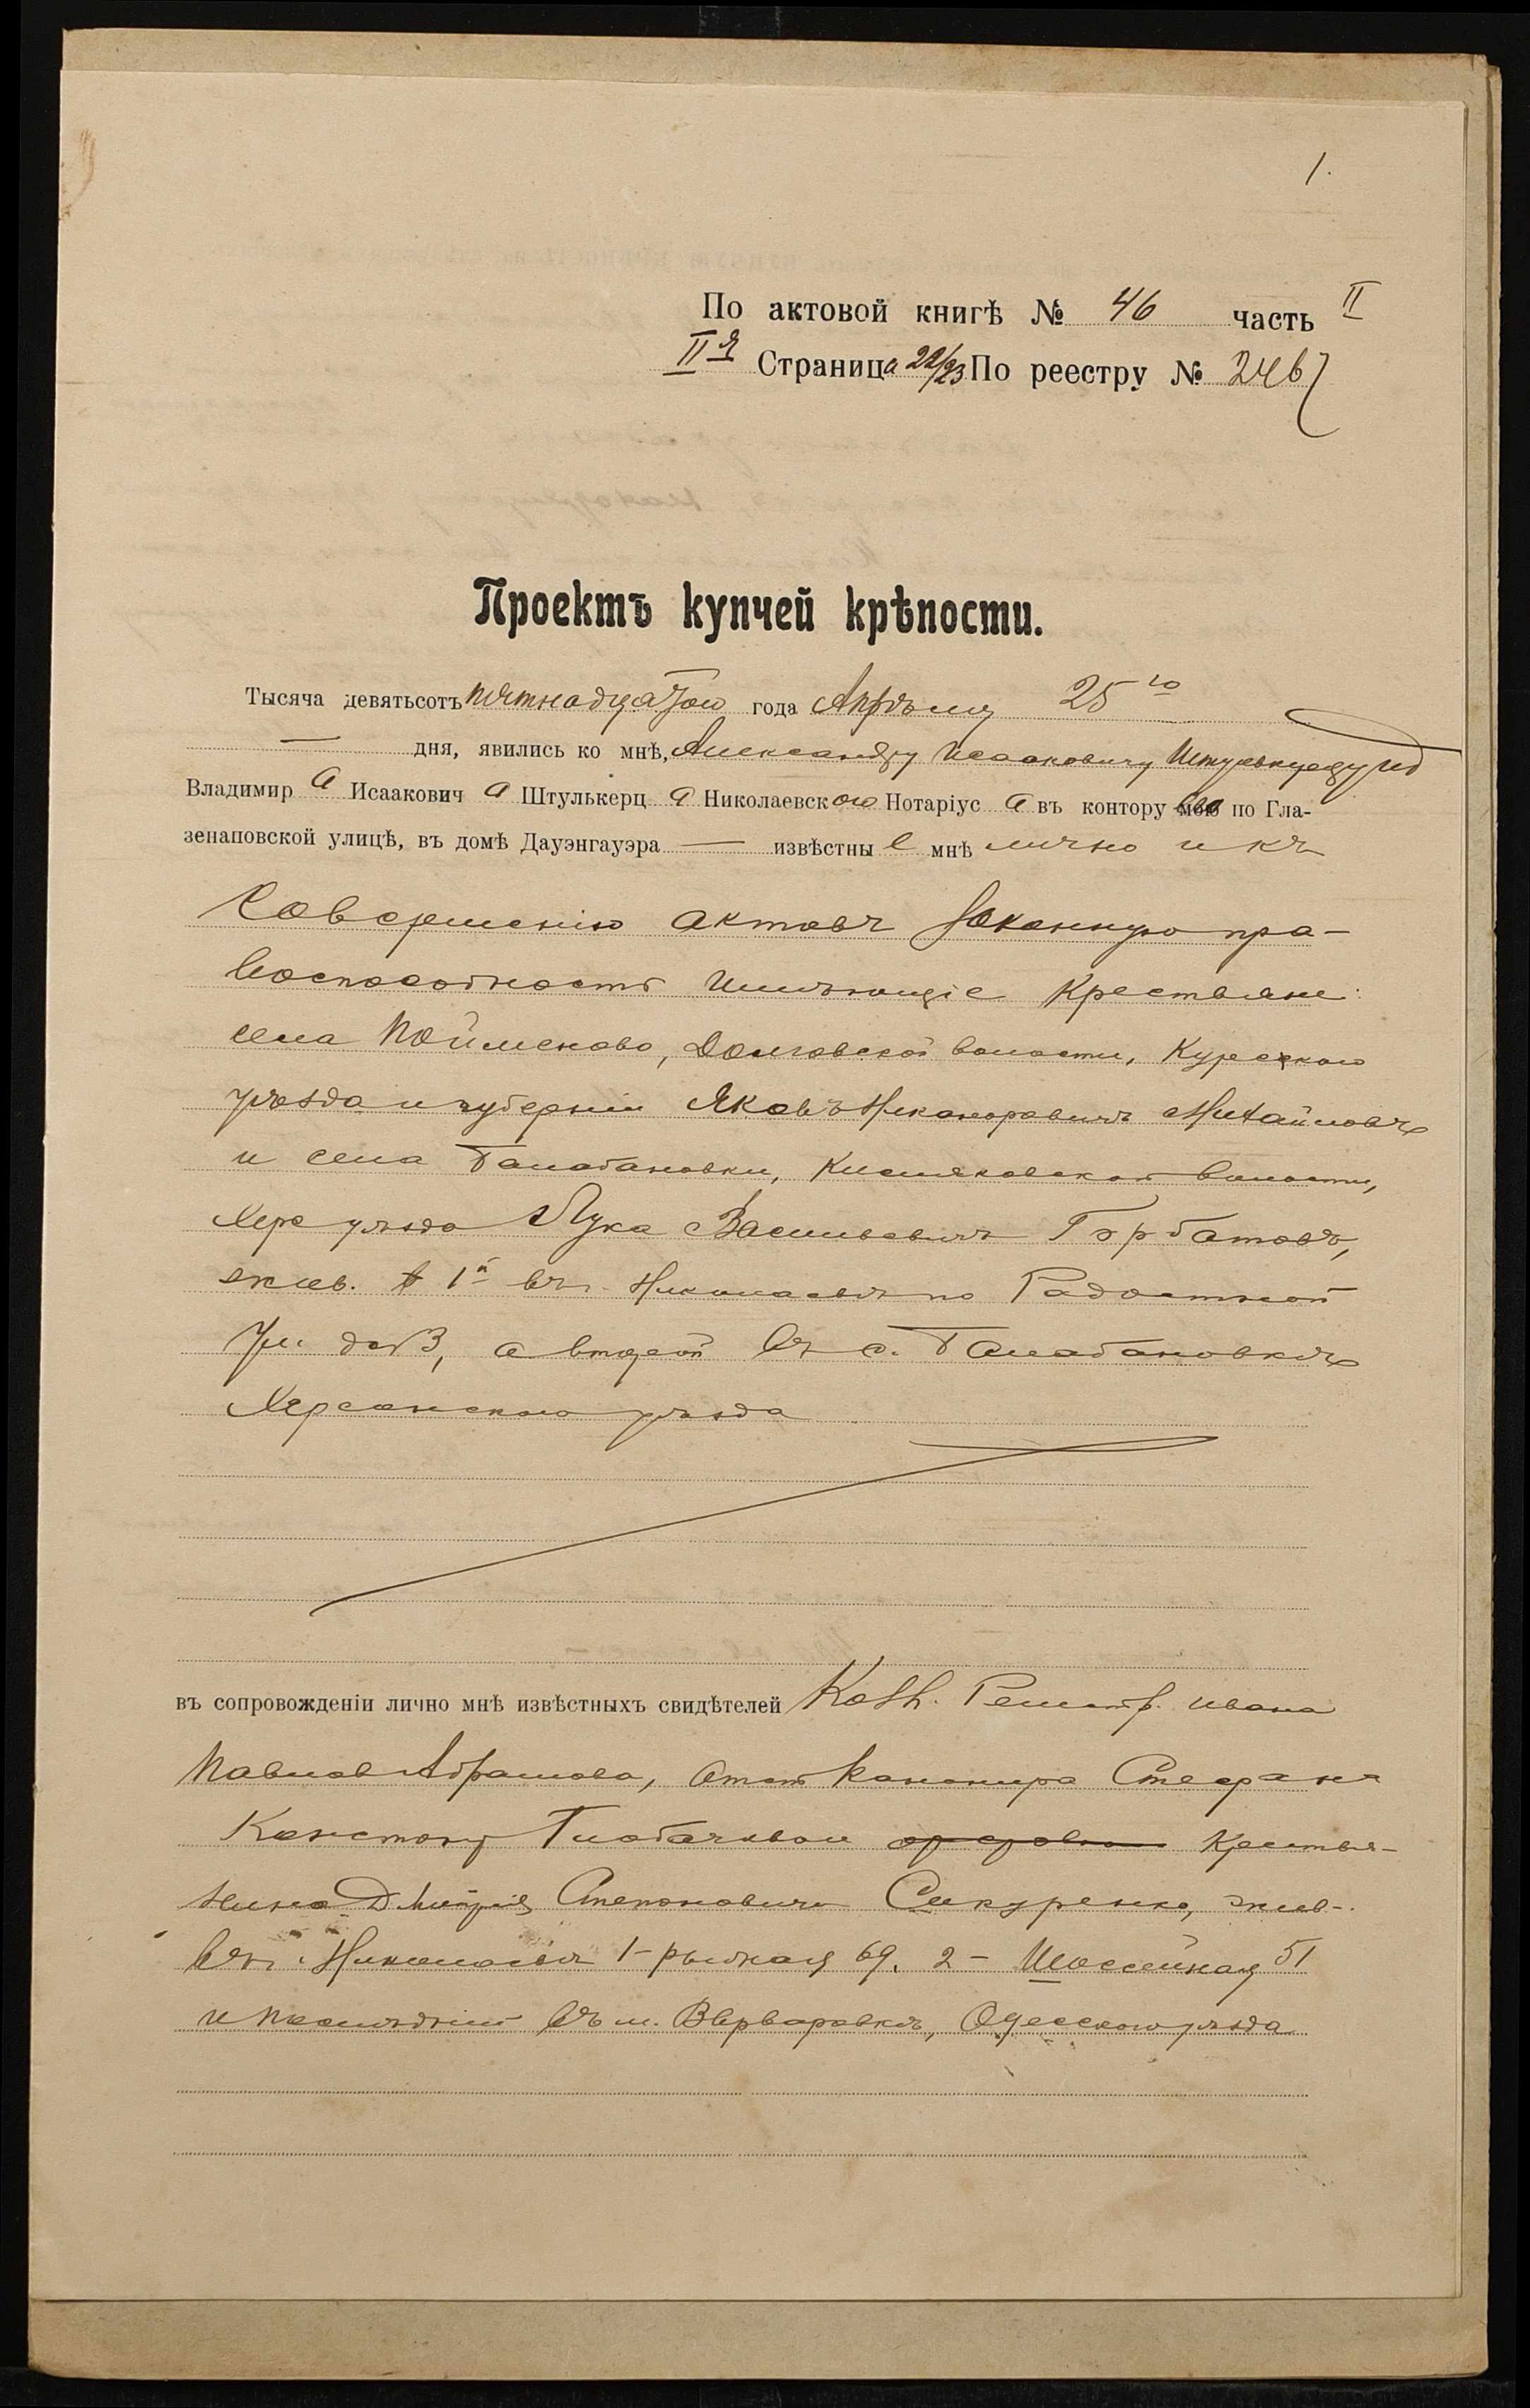 1.
По актовой книгѣ № 46 часть II
IIя Страница 22/23 По реестру № 246
Проектъ купчей крѣпости.
Тысяча девятьсотъ пятнадцатаго года Апрѣля 25го
— дня, явились ко мнѣ, Александру Исааковичу Штулькерцу ид
Владимир а Исаакович а Штулькерц а Николаевскою Нотаріус а въ контору его по Гла-
зенаповской улицѣ, въ домѣ Дауэнгауэра — извѣстные мнѣ лично и къ
совершенію актовъ законную пра-
воспособность имѣющіе крестьяне:
села Пойменово, Долговской волости, Курскаго
уѣзда и губерніи Яковъ Никаноровичъ Михайловъ
и села Балабановки, Кисляковской волости,
Херс уѣзда Лука Васильевичъ Горбатовъ,
жив. 1й въ г. Николаевѣ по Радостной
ул. д. №3, а второй въ с. Балабановкѣ
Херсонскаго уѣзда
въ сопровожденіи лично мнѣ извѣстныхъ свидѣтелей Колл. Регистр. Ивана
Павлов Абрамова, Стефана
Константин крестья-
нина Дмитрія Степановича Сикуренко, жив.
въ г. Николаевѣ 1- рыбная 69, 2- Шоссейная 51
и послѣдній въ м. Варваровкѣ, Одесскаго уѣзда